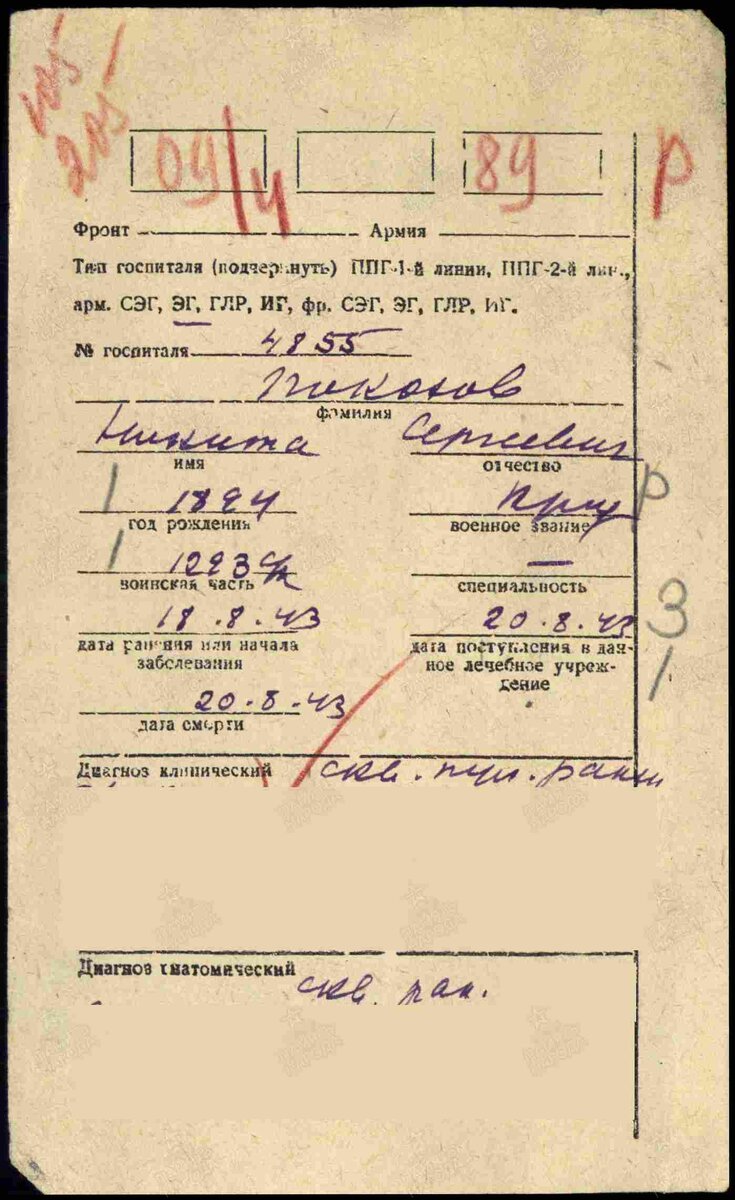 205
205
09/4 89 Р
Фронт Армия
Тип госпиталя (подчеркнуть) ППГ-1-й линии, ППГ-2-й лин.,
арм. СЭГ, ЭГ, ГЛР, ИГ, фр. СЭГ, ЭГ, ГЛР, ИГ.
№ госпиталя 4855
фамилия
Никита Сергеевич
имя отчество
1 1894 Р
год рождения военное звание
1 1293 —
воинская часть специальность
18.8.43 20.8.43 3
дата ранения или начала дата поступления в дан-
заболевания ное лечебное учреж- 1
дение
20.8.43
дата смерти
Диагноз клинический скв. пул. ранен
Диагноз анатомический скв. ран.